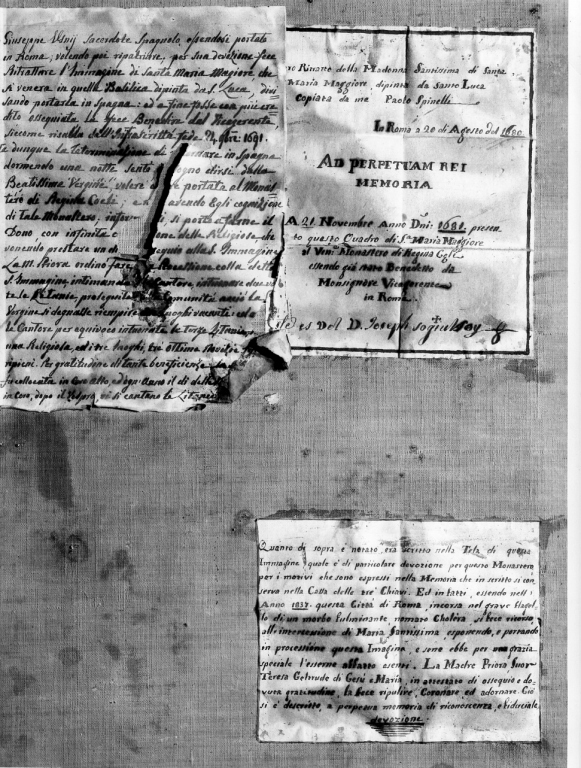 Giuseppe Usnij Sacerdote Spagnolo, essendosi portato
in Roma; volendo poi ripatriare, per sua devozione fece
Ritrattare l'Immagine di Santa Maria Magiore che
si venera in quella Basilica dipinta da S. Luca, divi
sando portarla in Spagna: ed a fine fosse con più cre
dito eseguita la fece Benedire dal Vicegerente,
siccome rivelta dall'Infrascritta fede 21. 9bre: 1681.
dunque la determinazione di mandare in Spagna
dormendo una notte sentì in sogno dirsi dalla
Beatissima Vergine, volere essere portata al Monas
tero di Regina Coeli; e avendo Egli cognizione
di tale Monastero; infor si portò a farne il
Dono con infinita delle Religiose, che
vonendo prestare un di sequio alla S. Immagine
La M. Priora ordinò fare Processione colla detta
S. Immagine, intimando Cantore, intonare due
te le Litanie, proseguita Comunità acciò la
Vergine si degnasse riempire luoghi vacanti: ed a
le Cantore per equivoco intonate le terze Litanie,
una Religiosa, ed i tre luoghi, tre ottime Novizie
ripieni. Per gratitudine di tante beneficienze la S.
fu collocata in Coro alto, ed ogn'anno il dì della
in Coro, dopo il Vespro, vi si cantano le Litanie
ro Ritratto della Madonna Santissima di Santa
Maria Maggiore, dipinta da Santo Luca
Copiata da me Paolo Spinelli
In Roma a 20 di Agosto del 1680.
AD PERPETUAM REI
MEMORIA
A 21. Novembre Anno Dni: 1681. presen
to questo Cuadro di S.ta Maria Maggiore
al Ven: Monastero di Regina Celi
essendo già stato Benedetto da
Monsignore Vicegerence
in Roma.
es Del D. Joseph
Quanto di sopra è notato, era scritto nella Tela di questa
Immagine quale è di particolare devozione per questo Monastero
per i motivi che sono espressi nella Memoria che in scritto si con
serva nella Cassa delle tre Chiavi. Ed in fatti, essendo nell'
Anno 1837. questa Città di Roma incorsa nel grave flagel
lo di un morbo fulminante, nomato Choléra si fece ricorso
all'intercessione di Maria Santissima esponendo, e portando
in processione questa Imagine, e sene ebbe per una grazia
speciale l'esserne affatto esenti. La Madre Priora Suor
Teresa Geltrude di Gesù e Maria, in attestato di ossequio e do-
vuta gratitudine, la fece ripulire, Coronare ed adornare. Ciò
si è descritto, a perpetua memoria di riconoscenza, e fiduciale
devozione.